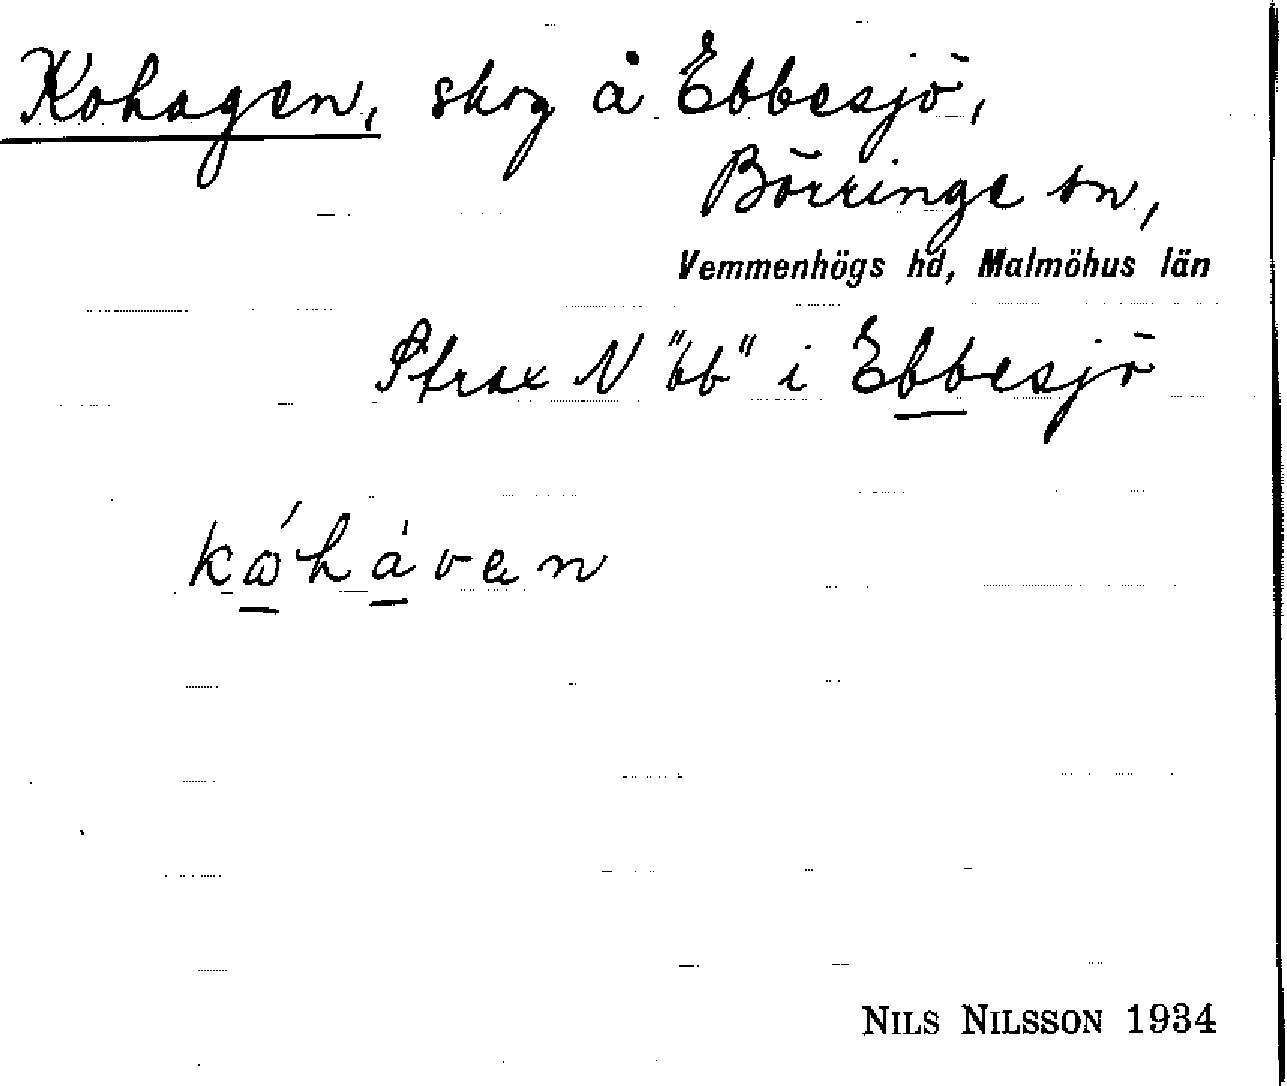 Kohagen, skog å Ebbesjö,
Börringe sn,
Vemmenhögs hd, Malmöhus län
Strax N "bb" i Ebbesjö
kóhàven
NILS NILSSON 1934